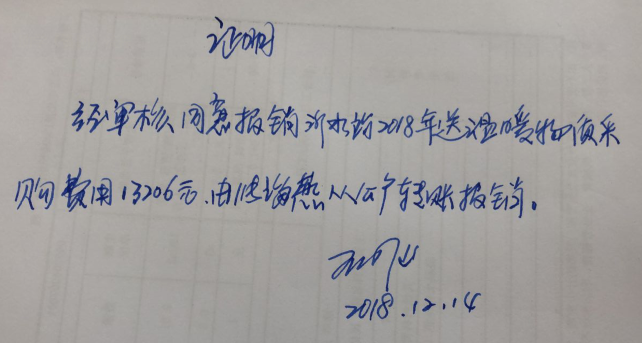 证明
经审核同意报销沂水站2018年送温暖物资采
购费用13206元,由张海燕从公户转账报销。
2018.12.14